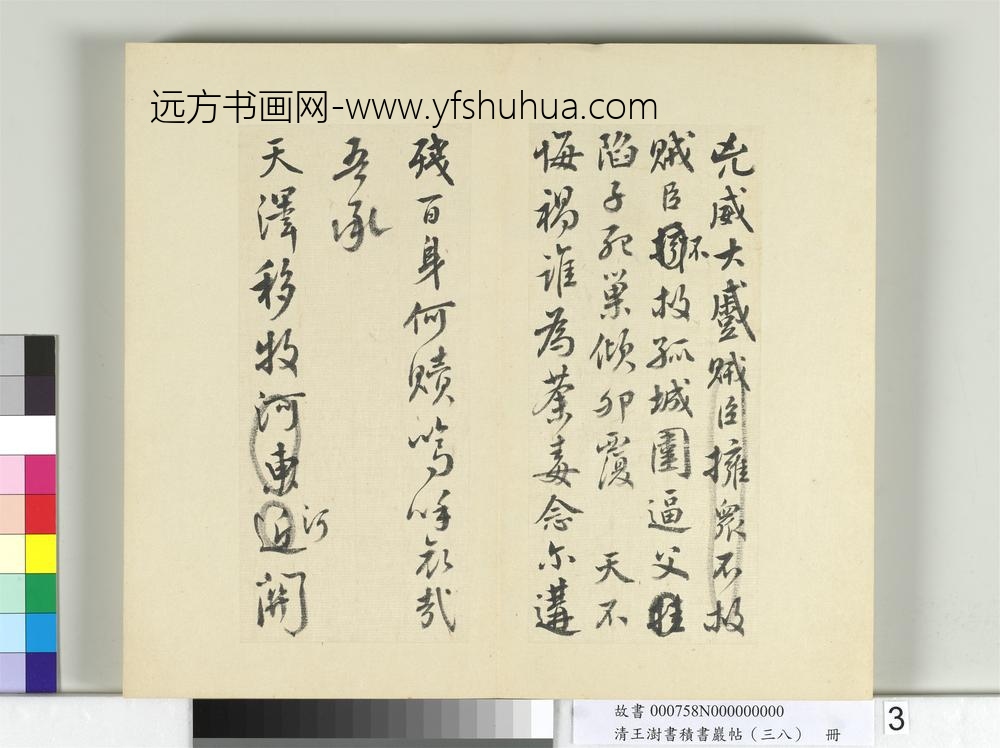 远方书画网-www.yfshuhua.com
光威大蹙賊臣擁眾不救
賊臣不救孤城圍逼父
陷子死巢傾卵覆 天不
悔禍誰為荼毒念尔遘
殘百身何贖嗚呼哀哉
吾承
天澤移牧河東近河關
故書 000758N000000000
清王澍書積書巖帖（三八） 冊
3